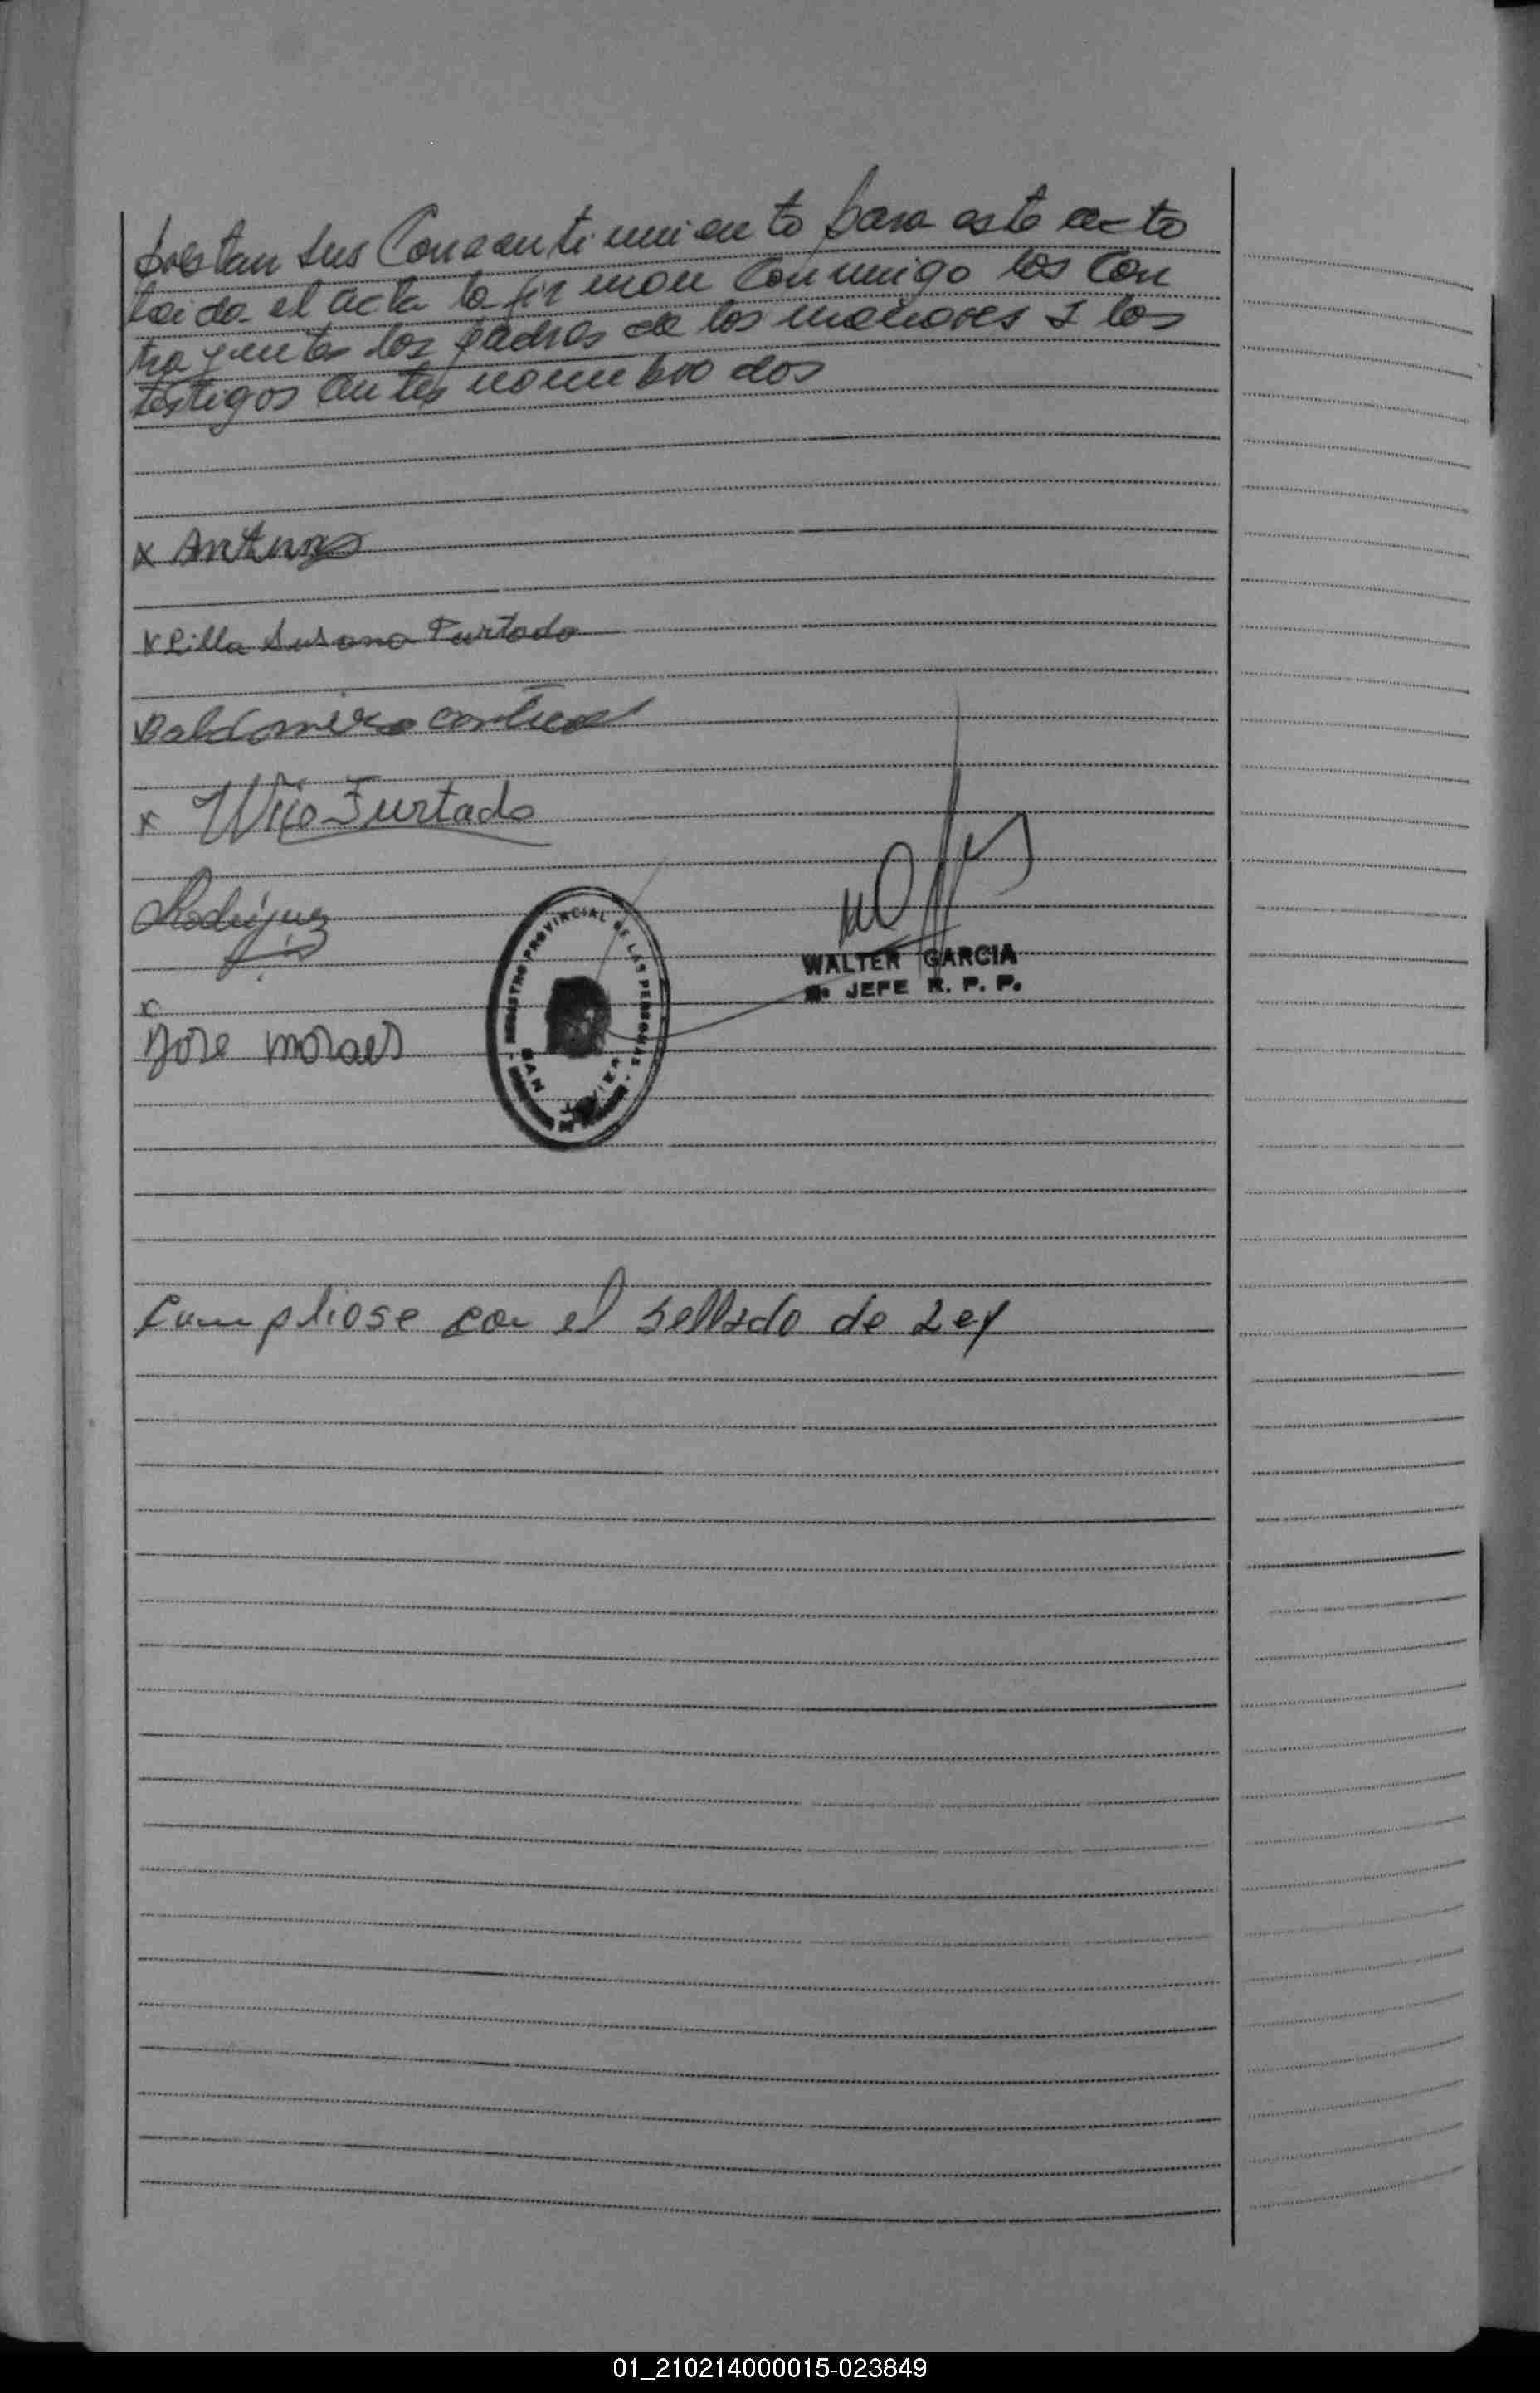 prestan sus Consentimiento para este acto
leida el acta la firman Conmigo los Con
trayentes los padres de los menores I los
testigos antes nombrados
x Antunes
x Lilla Susana Furtado
Baldomero
x Wijo Furtado
Rodriguez
x
Jose moraes
REGISTRO PROVINCIAL DE LAS PERSONAS
SAN JAVIER
WALTER GARCIA
JEFE R. P. P.
Cumpliose con el sellado de Ley
01_210214000015-023849